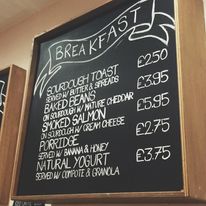 BREAKFAST
SOURDOUGH TOAST £2.50
SERVED W/ BUTTER & SPREADS
BAKED BEANS £3.95
ON SOURDOUGH W/ MATURE CHEDDAR
SMOKED SALMON £5.95
ON SOURDOUGH W/ CREAM CHEESE
PORRIDGE £2.75
SERVED W/ BANANA & HONEY
NATURAL YOGURT £3.75
SERVED W/ COMPOTE & GRANOLA